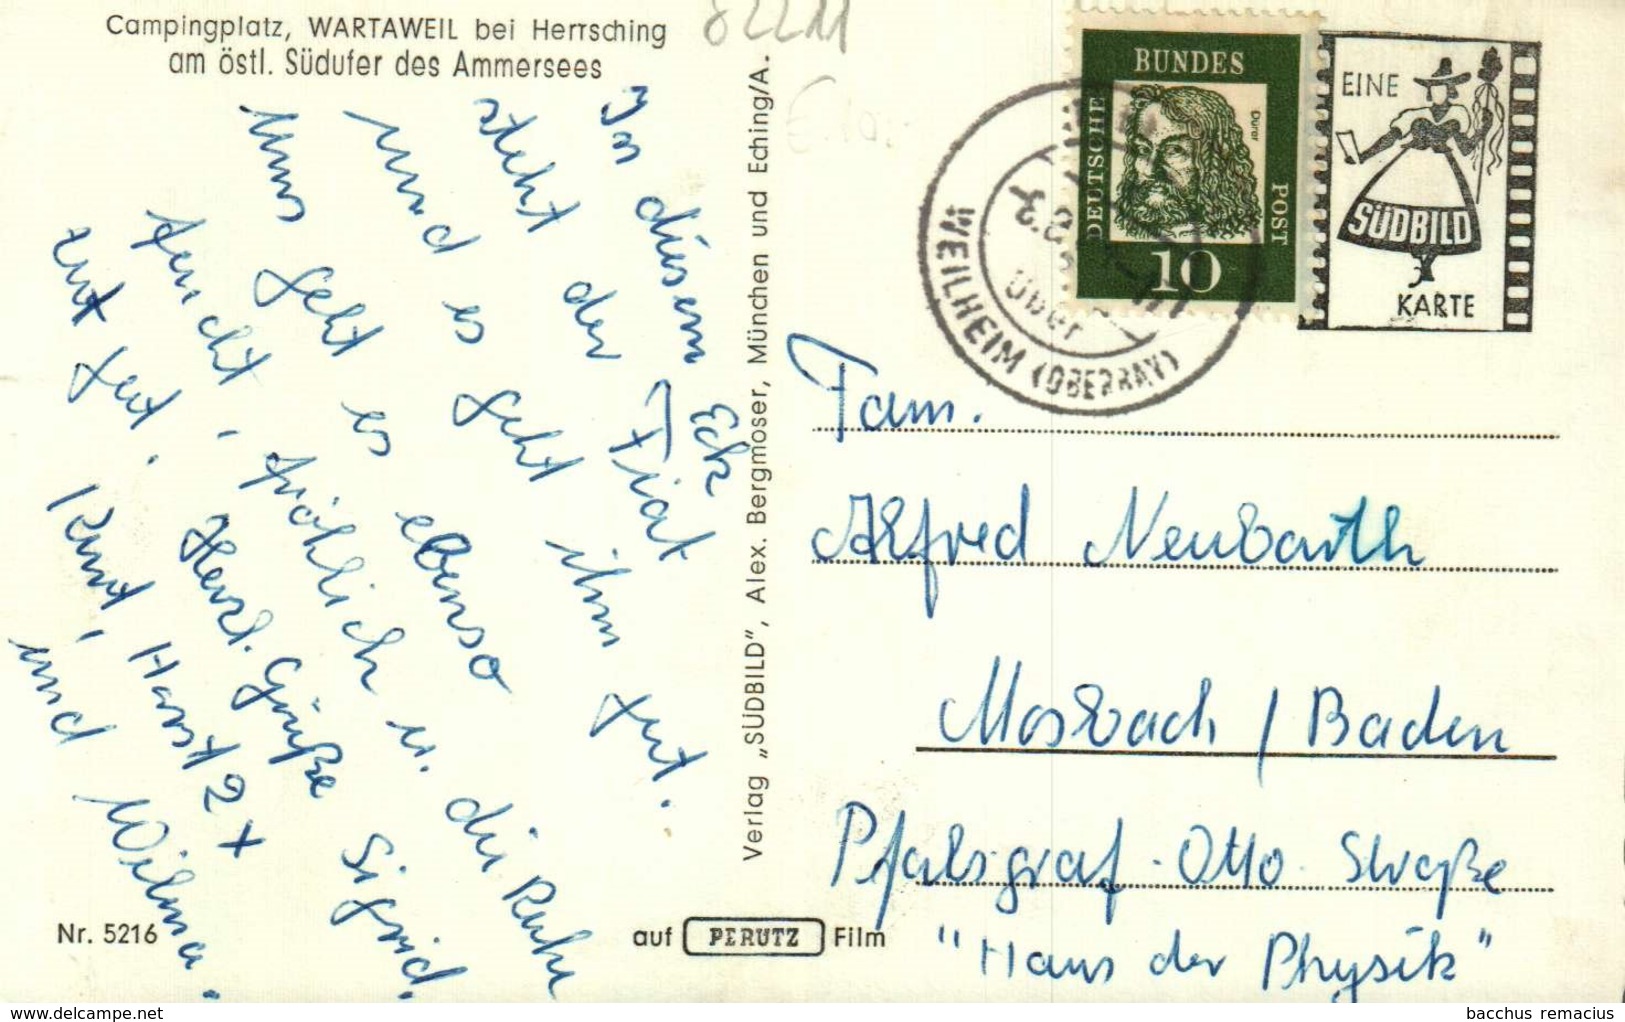 Campingplatz, WARTAWEIL bei Herrsching
am östl. Südufer des Ammersees
82211
In diesem Eck
steht der Fiat
und es geht ihm gut.
Uns geht es ebenso
feucht, fröhlich u. die Ruhe
tut gut.
Herzl. Grüße Sigrid.
Kurt, Horst 2x
und Wilma.
Nr. 5216
auf PERUTZ Film
Verlag „SÜDBILD", Alex. Bergmoser, München und Eching/A.
DEUTSCHE BUNDES POST
Dürer
10
WEILHEIM (OBERBAY)
über
EINE
SÜDBILD
KARTE
Fam.
Alfred Neubarth
Mosbach / Baden
Pfalzgraf-Otto-Straße
"Haus der Physik"
www.delcampe.net
bacchus remacius